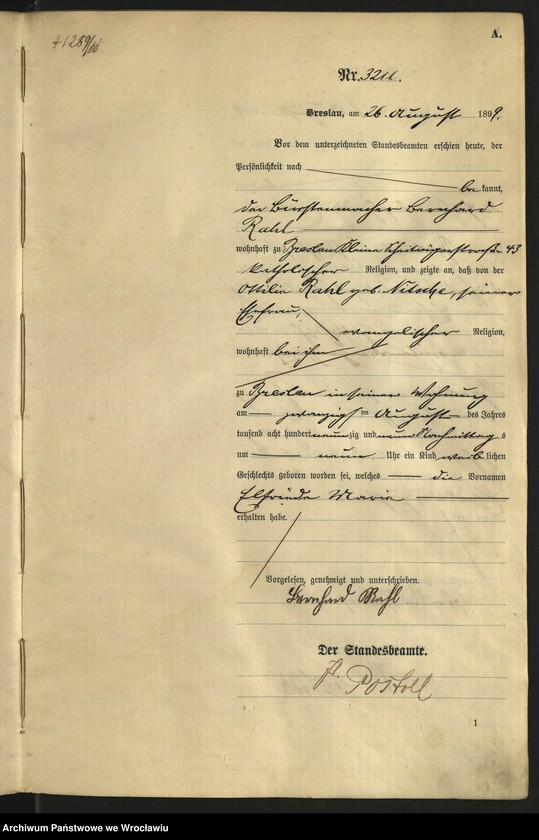 A.
Nr.
Breslau, am 26. August 1899.
Vor dem unterzeichneten Standesbeamten erschien heute, der
Persönlichkeit nach
be kannt,
der Bürstenmacher Bernhard
Rahl
wohnhaft zu Breslau Kleine Scheitnigerstraße 43
katholischer Religion, und zeigte an, daß von der
Ottilie Rahl geb. Nitsche, seiner
Ehefrau,
evangelischer Religion,
wohnhaft bei ihm
zu Breslau in seiner Wohnung
am zwanzigsten August des Jahres
tausend acht hundert neunzig und neun Nachmittags
um neun Uhr ein Kind weiblichen
Geschlechts geboren worden sei, welches die Vornamen
Elfriede Marie
erhalten habe.
Vorgelesen, genehmigt und unterschrieben.
Bernhard Rahl
Der Standesbeamte.
1
Archiwum Państwowe we Wrocławiu